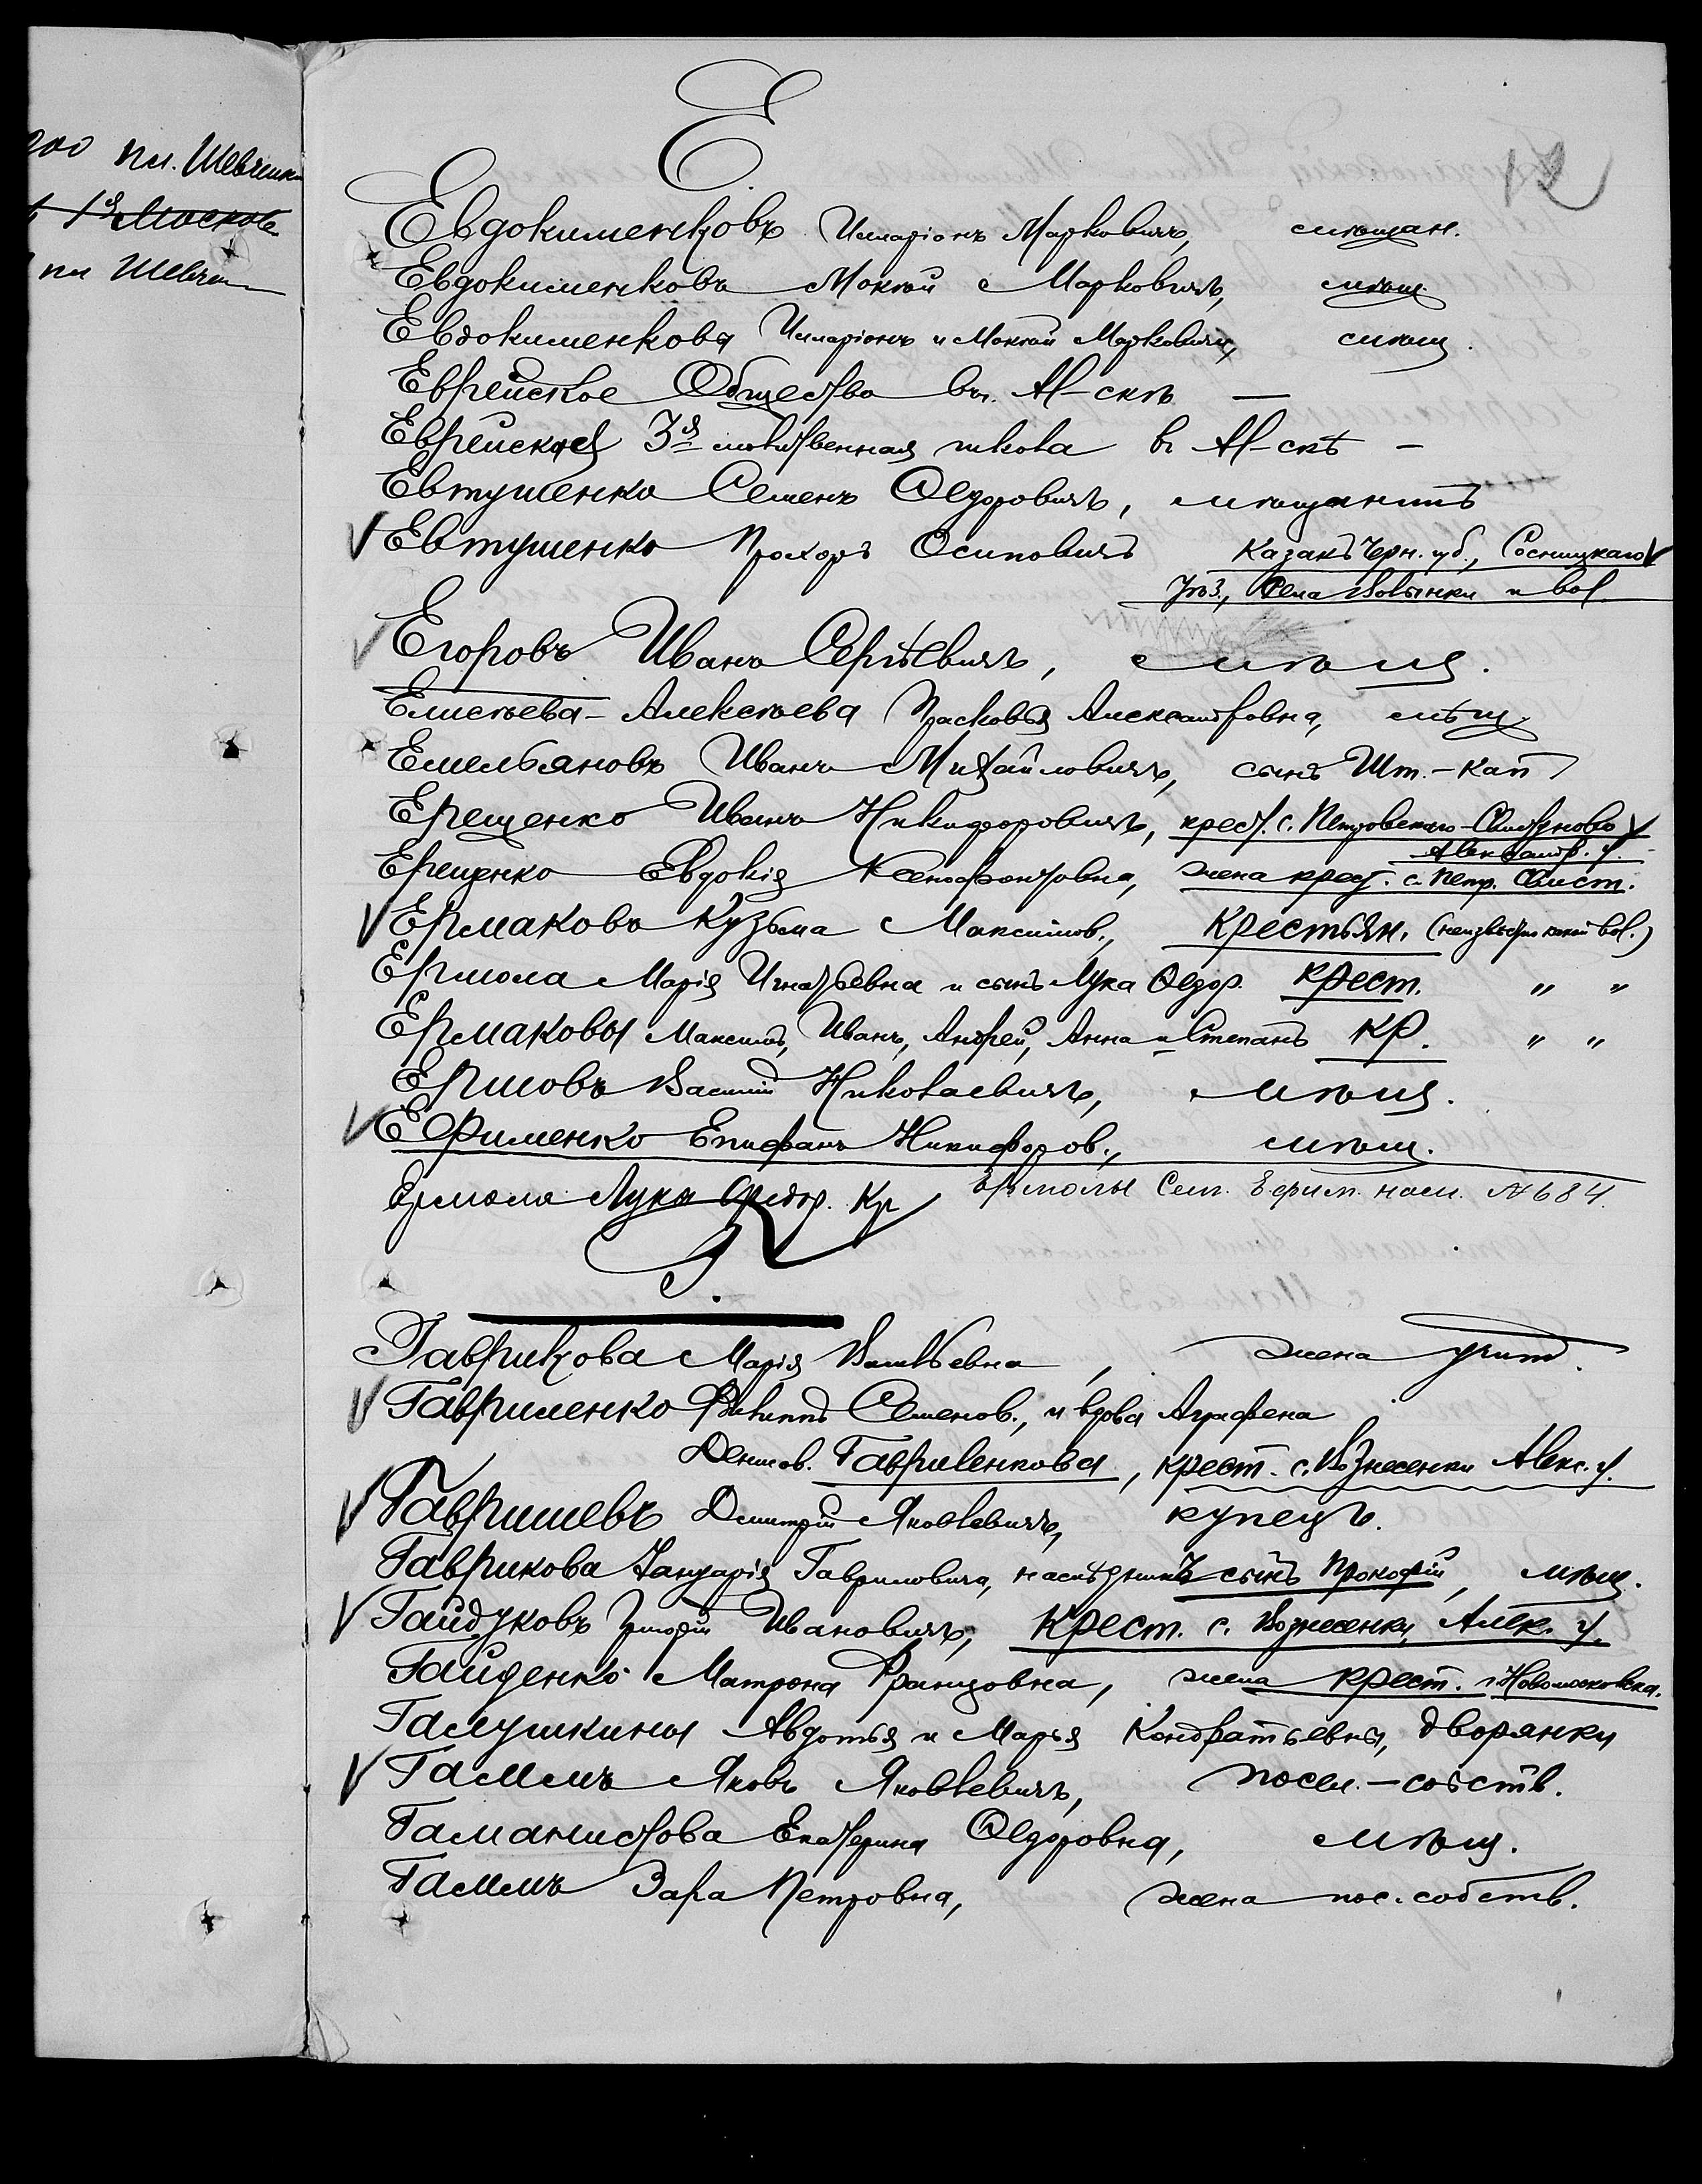 пл. Шевченка
1я Москов.
пл Шевчен
12
Е.
Евдокименковъ Илларіонъ Марковичъ, мѣщан.
Евдокименковъ Мокій Марковичъ, мѣщ.
Евдокименкова Илларіонъ и Мокій Марковичи, мѣщ.
Еврейское Общество въ. Ал-скѣ —
Еврейская 3я молитвенная школа въ Ал-скѣ —
Евтушенко Семенъ Ѳедоровичъ, мѣщанинъ
Евтушенко Прохоръ Осиповичъ Казакъ Черн. губ., Сосницкаго
уѣз., села Волынки и вол.
Егоровъ Иванъ Сергѣевичъ, мѣщ.
Елисѣева-Алексѣева Прасковья Александровна, мѣщ.
Емельяновъ Иванъ Михайловичъ, сынъ Шт.-кап
Ерещенко Иванъ Никифоровичъ, крест. с. Петровскаго-Свистуново
Александр. у.
Ерещенко Евдокія Ксенофонтовна, жена крест. с. Петр. Свист.
Ермаковъ Кузьма Максимов., Крестьян. (неизвѣстно какой вол.)
Ермола Марія Игнатьевна и сынъ Лука Ѳедор. крест. " "
Ермаковы Максимъ, Иванъ, Андрей, Анна и Степанъ кр. " "
Ершовъ Василій Николаевичъ, мѣщ.
Ефименко Епифанъ Никифоров., мѣщ.
Ермола Лука Ѳедор. Кр Ермолы Сем. Ефим. насл. №684.
Г.
Гаврикова Марія Васильевна, жена учит.
Гавриленко Филиппъ Семенов., и вдова Аграфена
Денисов. Гавриленкова, крест. с. Вознесенки Алекс. у.
Гавришевъ Дмитрій Яковлевичъ, купецъ.
Гаврикова Іануарія Гавриловича, наслѣдникъ сынъ Прокофій, мѣщ.
Гайдуковъ Григорій Ивановичъ, Крест. с. Вознесенки, Алек. у.
Гайденко Матрона Францовна, жена крест. г. Новомосковска.
Галушкины Авдотья и Марья Кондратьевны, дворянки
Гаммъ Яковъ Яковлевичъ, посел.-собств.
Гаманистова Екатерина Ѳедоровна, мѣщ.
Гаммъ Зара Петровна, жена пос. собств.